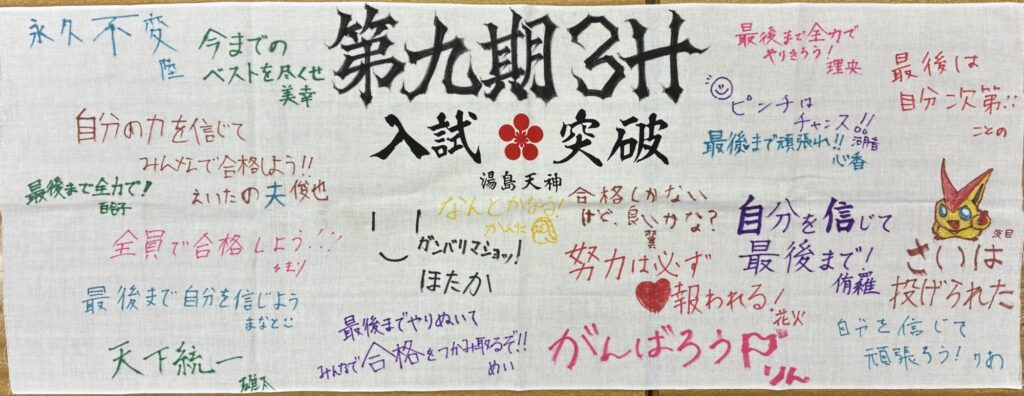 第九期 3H
入試 突破
湯島天神
永久不変
陸
今までの
ベストを尽くせ
美幸
自分の力を信じて
みんなで合格しよう!!
えいたの夫 俊也
最後まで全力で!
全員で合格しよう!!!
最後まで自分を信じよう
まなと
天下統一
雄太
なんとかなる!
かんた
ガンバリマショッ!
ほたか
最後までやりぬいて
みんなで合格をつかみ取るぞ!!
めい
合格しかない
けど、良いかな?
翼
努力は必ず
報われる!
花火
がんばろう
りん
最後まで全力で
やりきろう!
理央
ピンチは
チャンス!!
最後まで頑張れ!!
心香
最後は
自分次第!!
ことの
自分を信じて
最後まで!
侑羅
さいは
投げられた
自分を信じて
頑張ろう! りお